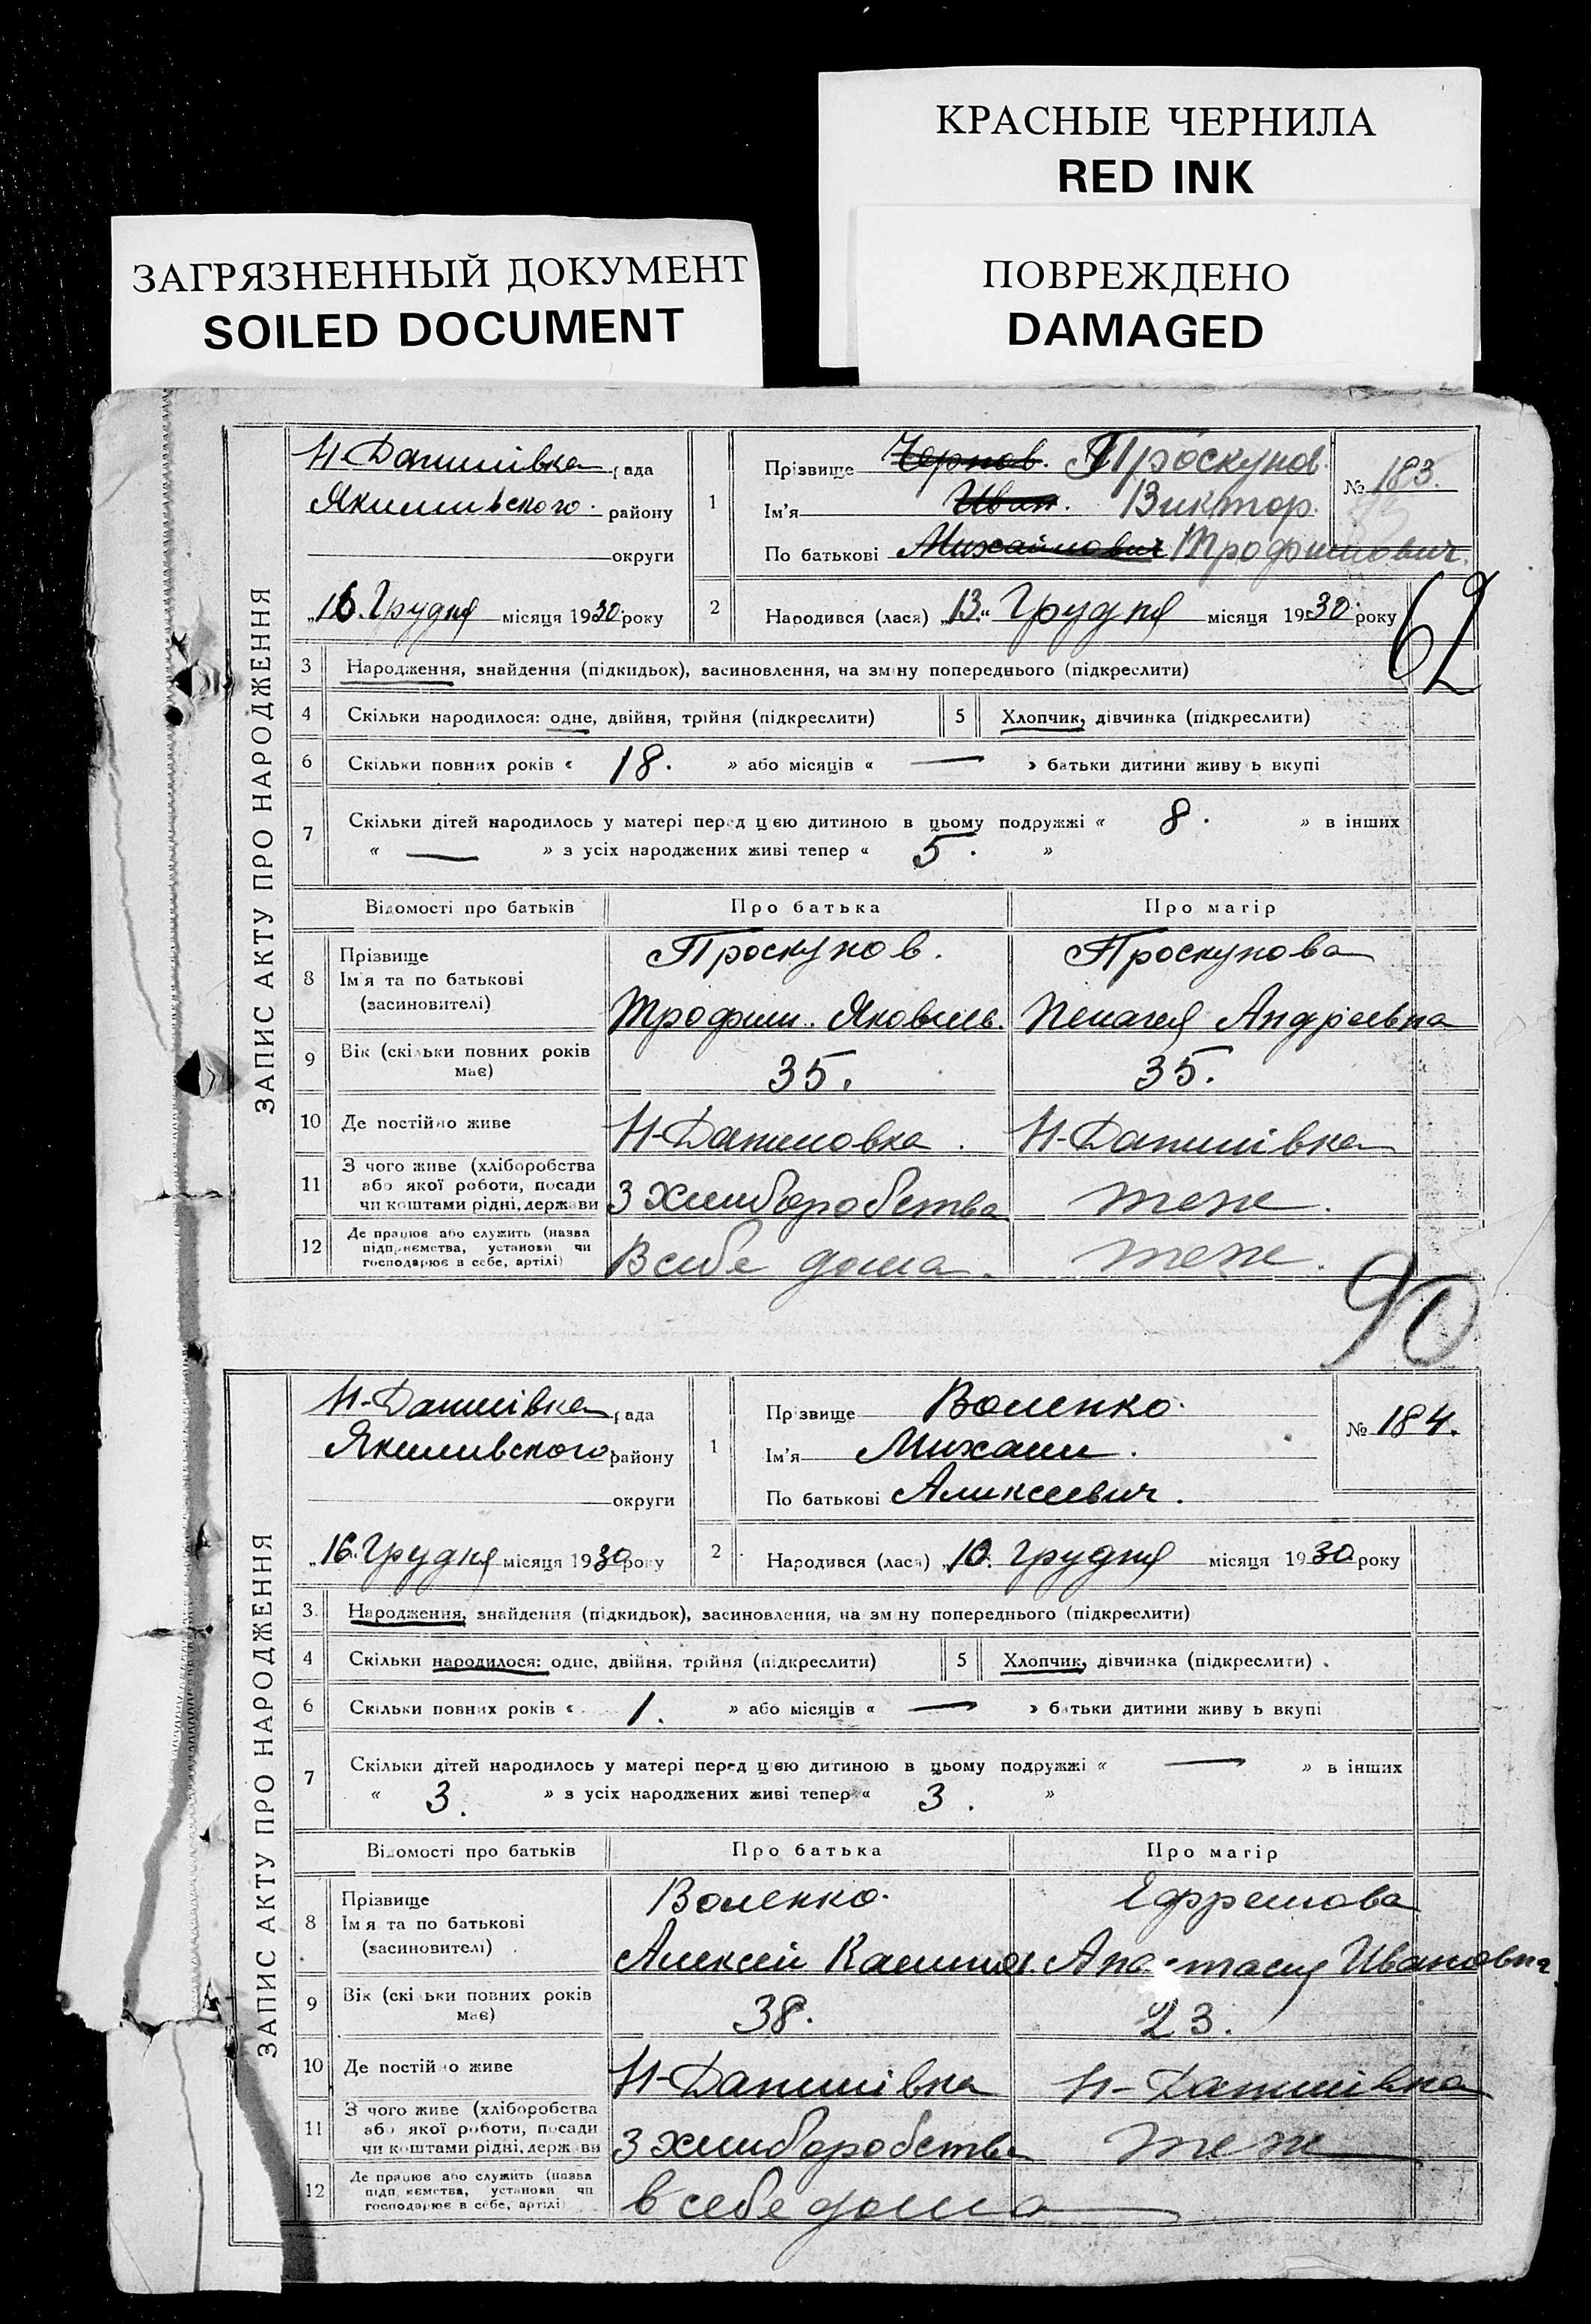 КРАСНЫЕ ЧЕРНИЛА
RED INK
ЗАГРЯЗНЕННЫЙ ДОКУМЕНТ
SOILED DOCUMENT
ПОВРЕЖДЕНО
DAMAGED
ЗАПИС АКТУ ПРО НАРОДЖЕННЯ
Н-Данилівка рада
Якимівського району
округи
"16" Грудня місяця 1930 року
1 Прізвище Чернов. Проскунов.
Ім'я Иван. Виктор.
По батькові Михайлович Трофимович.
№ 183.
2 Народився (лася) "13" Грудня місяця 1930 року
62
3 Народження, знайдення (підкидьок), засиновлення, на зміну попереднього (підкреслити)
4 Скільки народилося: одне, двійня, трійня (підкреслити) 5 Хлопчик, дівчинка (підкреслити)
6 Скільки повних років « 18. » або місяців « — » батьки дитини живуть вкупі
7 Скільки дітей народилось у матері перед цією дитиною в цьому подружжі « 8. » в інших
« — » з усіх народжених живі тепер « 5. »
Відомості про батьків Про батька Про матір
8 Прізвище Проскунов. Проскунова
Ім'я та по батькові
(засиновителі) Трофим. Яковлев. Пелагея Андреевна
9 Вік (скільки повних років має) 35. 35.
10 Де постійно живе Н-Даниловка. Н-Данилівка
11 З чого живе (хліборобства
або якої роботи, посади
чи коштами рідні, держави З хліборобства теж.
12 Де працює або служить (назва
підприємства, установи чи
господарює в себе, артілі) В себе дома. теж.
90
ЗАПИС АКТУ ПРО НАРОДЖЕННЯ
Н-Данилівка рада
Якимивського району
округи
"16" Грудня місяця 1930 року
1 Прізвище Воленко.
Ім'я Михаил.
По батькові Аликсеевич.
№ 184.
2 Народився (лася) "10" грудня місяця 1930 року
3 Народження, знайдення (підкидьок), засиновлення, на зміну попереднього (підкреслити)
4 Скільки народилося: одне, двійня, трійня (підкреслити) 5 Хлопчик, дівчинка (підкреслити)
6 Скільки повних років « 1. » або місяців « — » батьки дитини живуть вкупі
7 Скільки дітей народилось у матері перед цією дитиною в цьому подружжі « — » в інших
« 3. » з усіх народжених живі тепер « 3. »
Відомості про батьків Про батька Про матір
8 Прізвище Воленко. Ефремова
Ім'я та по батькові
(засиновителі) Алексей Анастасия Ивановна
9 Вік (скільки повних років має) 38. 23.
10 Де постійно живе Н-Данилівка Н-Данилівка
11 З чого живе (хліборобства
або якої роботи, посади
чи коштами рідні, держави З хліборобства теж
12 Де працює або служить (назва
підприємства, установи чи
господарює в себе, артілі) в себе дома